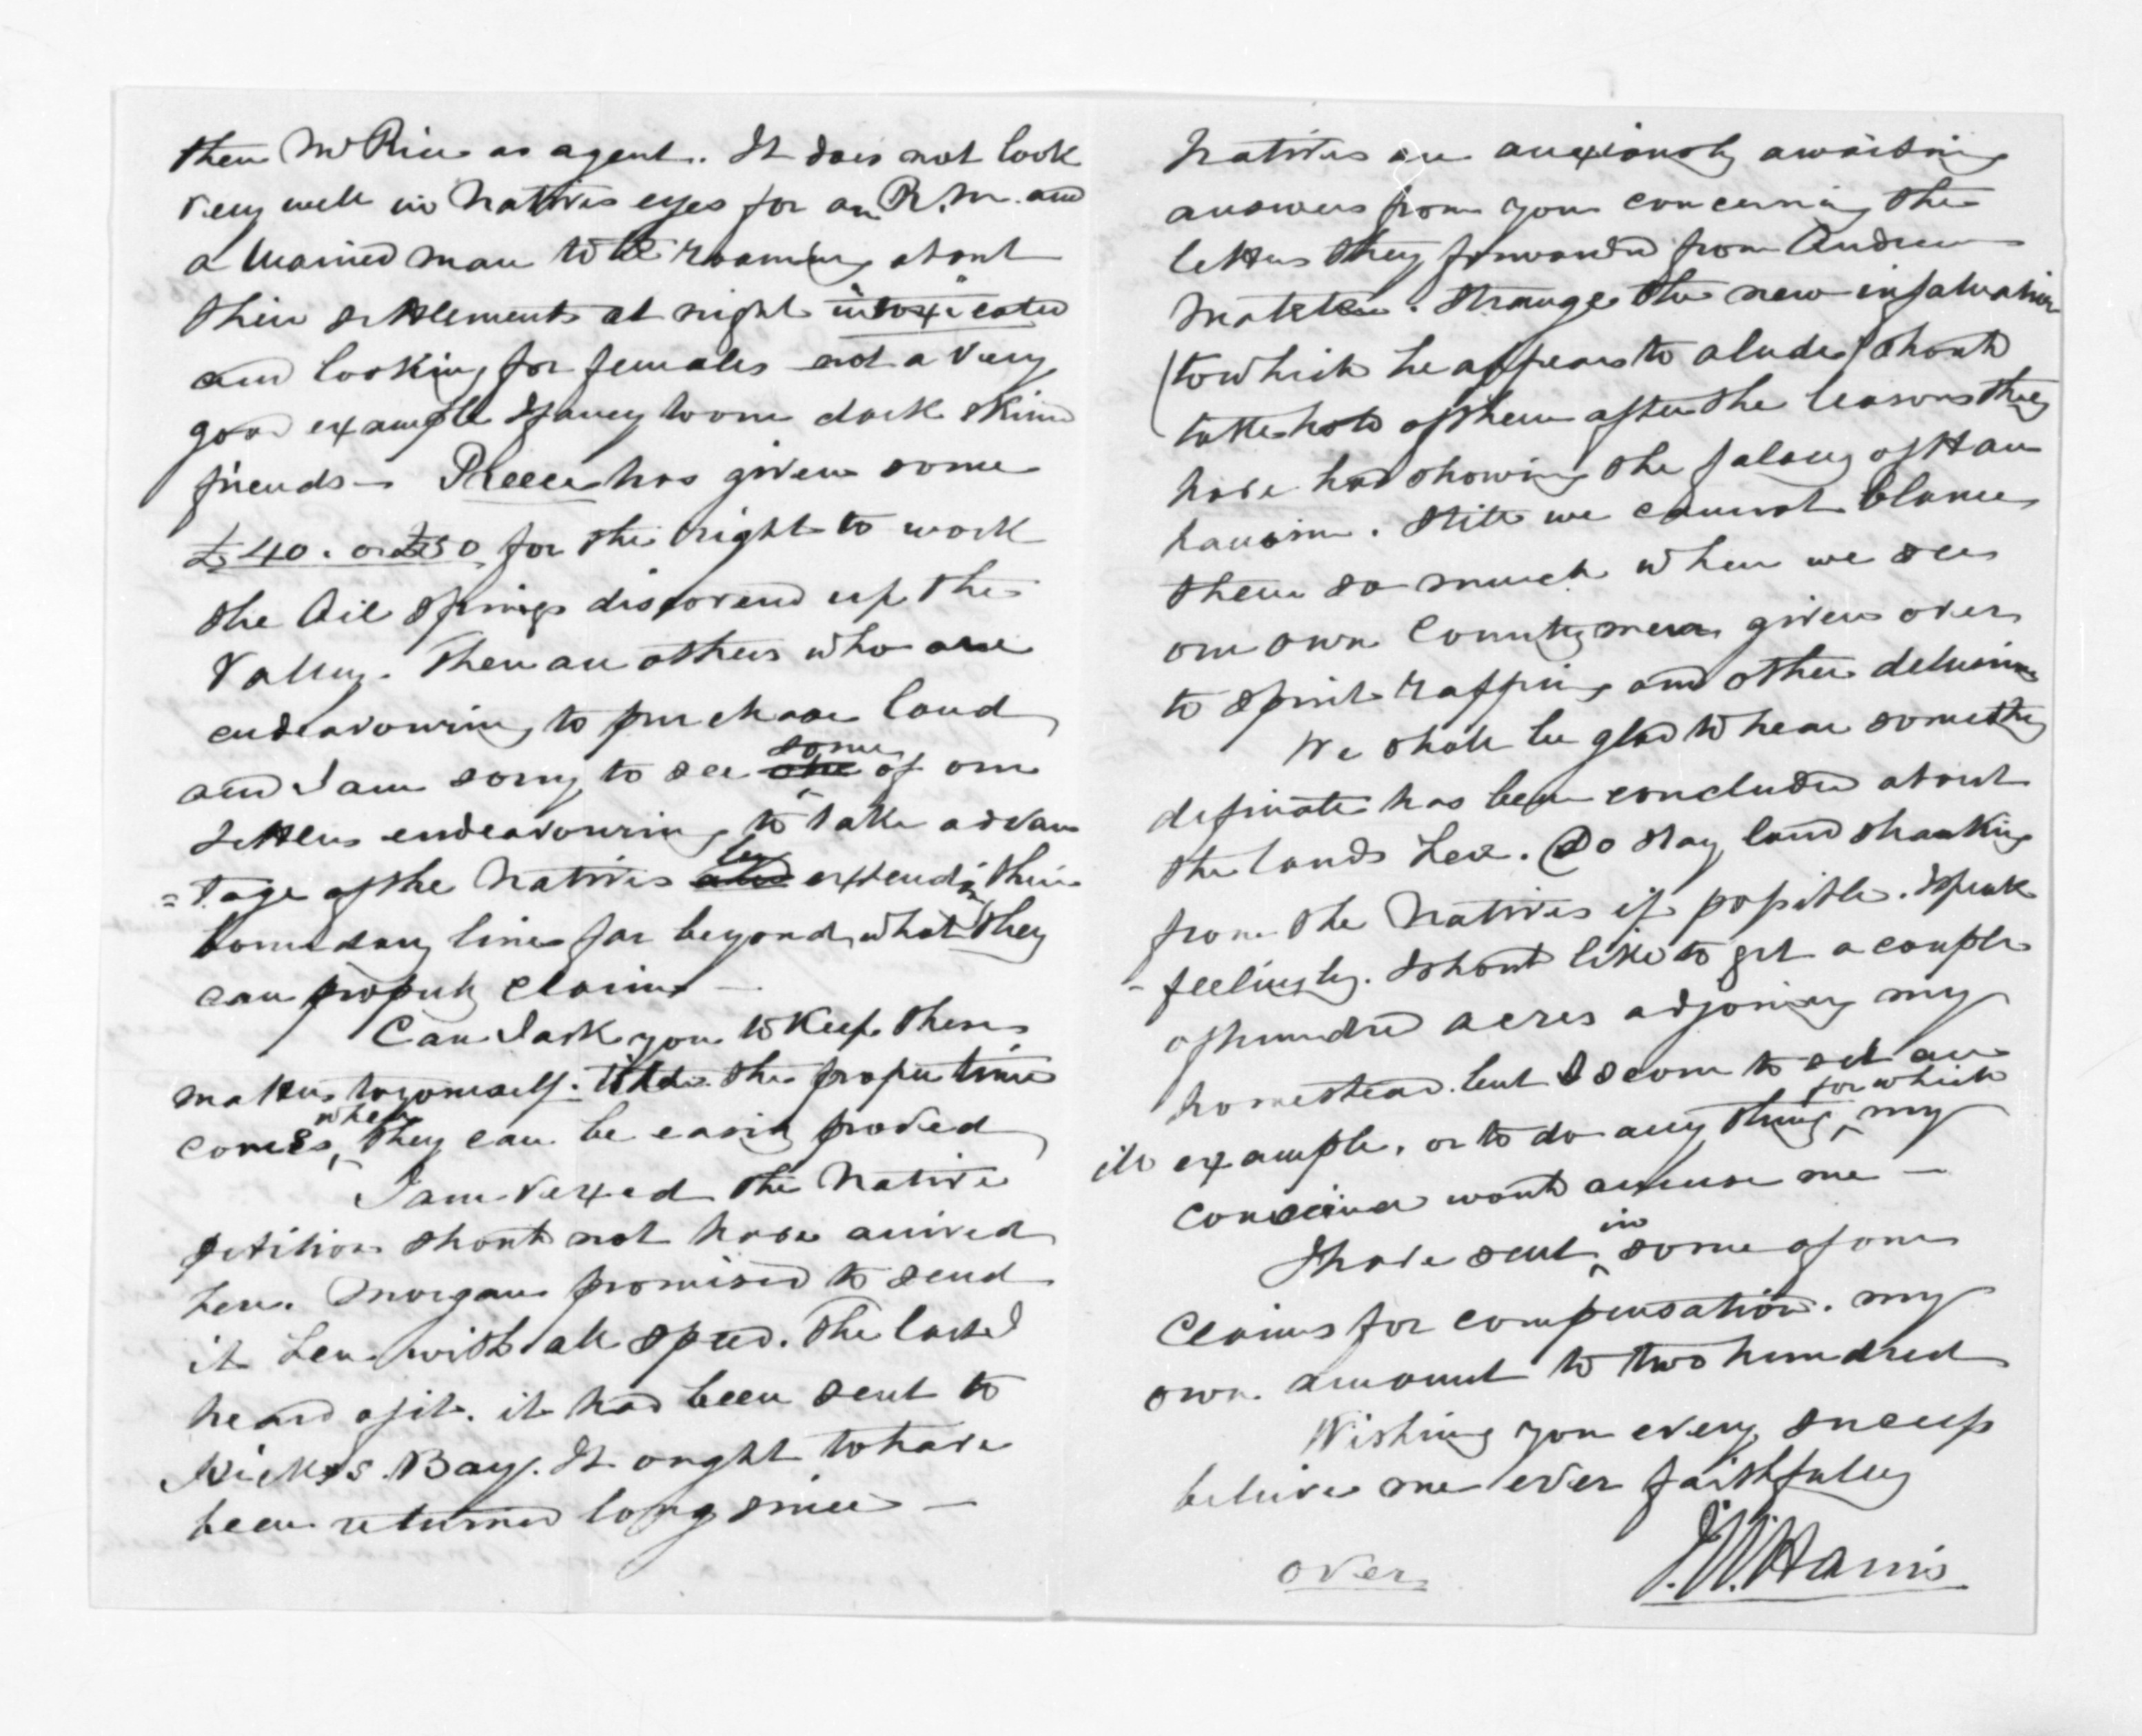 then Mr Rice as agent. It does not look
very well in Natives eyes for an R.M. and
a Married man to be roaming about
their settlements at night "intoxicated"
and looking for females not a very
good example I fancy to our dark skind
friends — Reece has given some
£40. or £50 for the right to work
the Oil Springs discovered up the
Valley. Then are others who are
endeavouring to purchase land
and I am sorry to see one some of our
settlers endeavouring to take advan
=tage of the Natives by extending their
boundary lines far beyond what they
can properly claim —
Can I ask you to keep these
matters to yourself. till the proper time
comes, when they can be easily proved
I am vexed the Native
petition should not have arrived
here. Morgan promised to send
it here with all speed. The last I
heard of it. it had been sent to
Hicks's Bay. It ought to have
been returned long since —
Natives are anxiously awaiting
answers from you concerning the
letters they forwarded from Andrew
Strange the new infatuation
(to which he appears to alude) should
take hold of them after the leasons they
have had showing the falacy of Hau
hauism. Still we cannot blame
them so much when we see
our own Countrymen given over
to spirit rapping and other delusions
We shall be glad to hear something
definate has been concluded about
the lands here. Do stay land sharking
from the Natives if possible. I speak
- feelingly. I should like to get a couple
of hundred acres adjoining my
homestead. but I scorn to set an
ill example. or to do any thing for which my
Conscience would accuse me —
I have sent in some of our
Claims for compensation. my
own. amount to two hundred
Wishing you every success
believe me ever faithfully
J.W. Harris
over